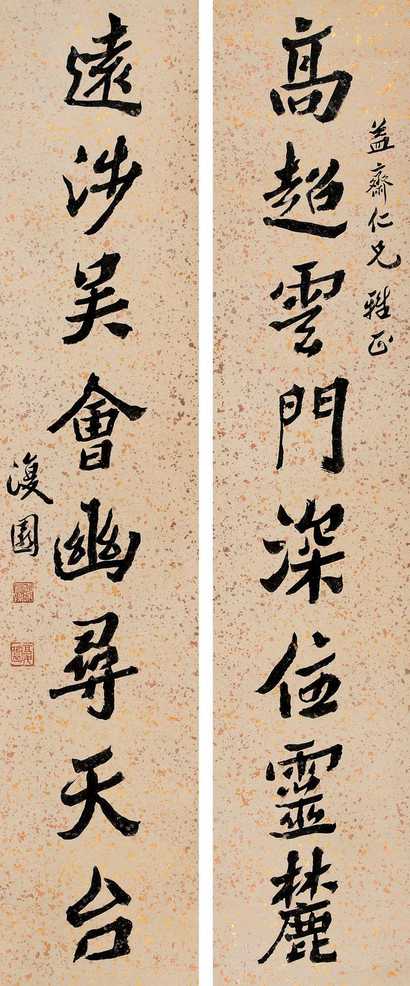 益齋仁兄雅正
高超雲門深靈麓
遠涉吳會幽尋天台
園